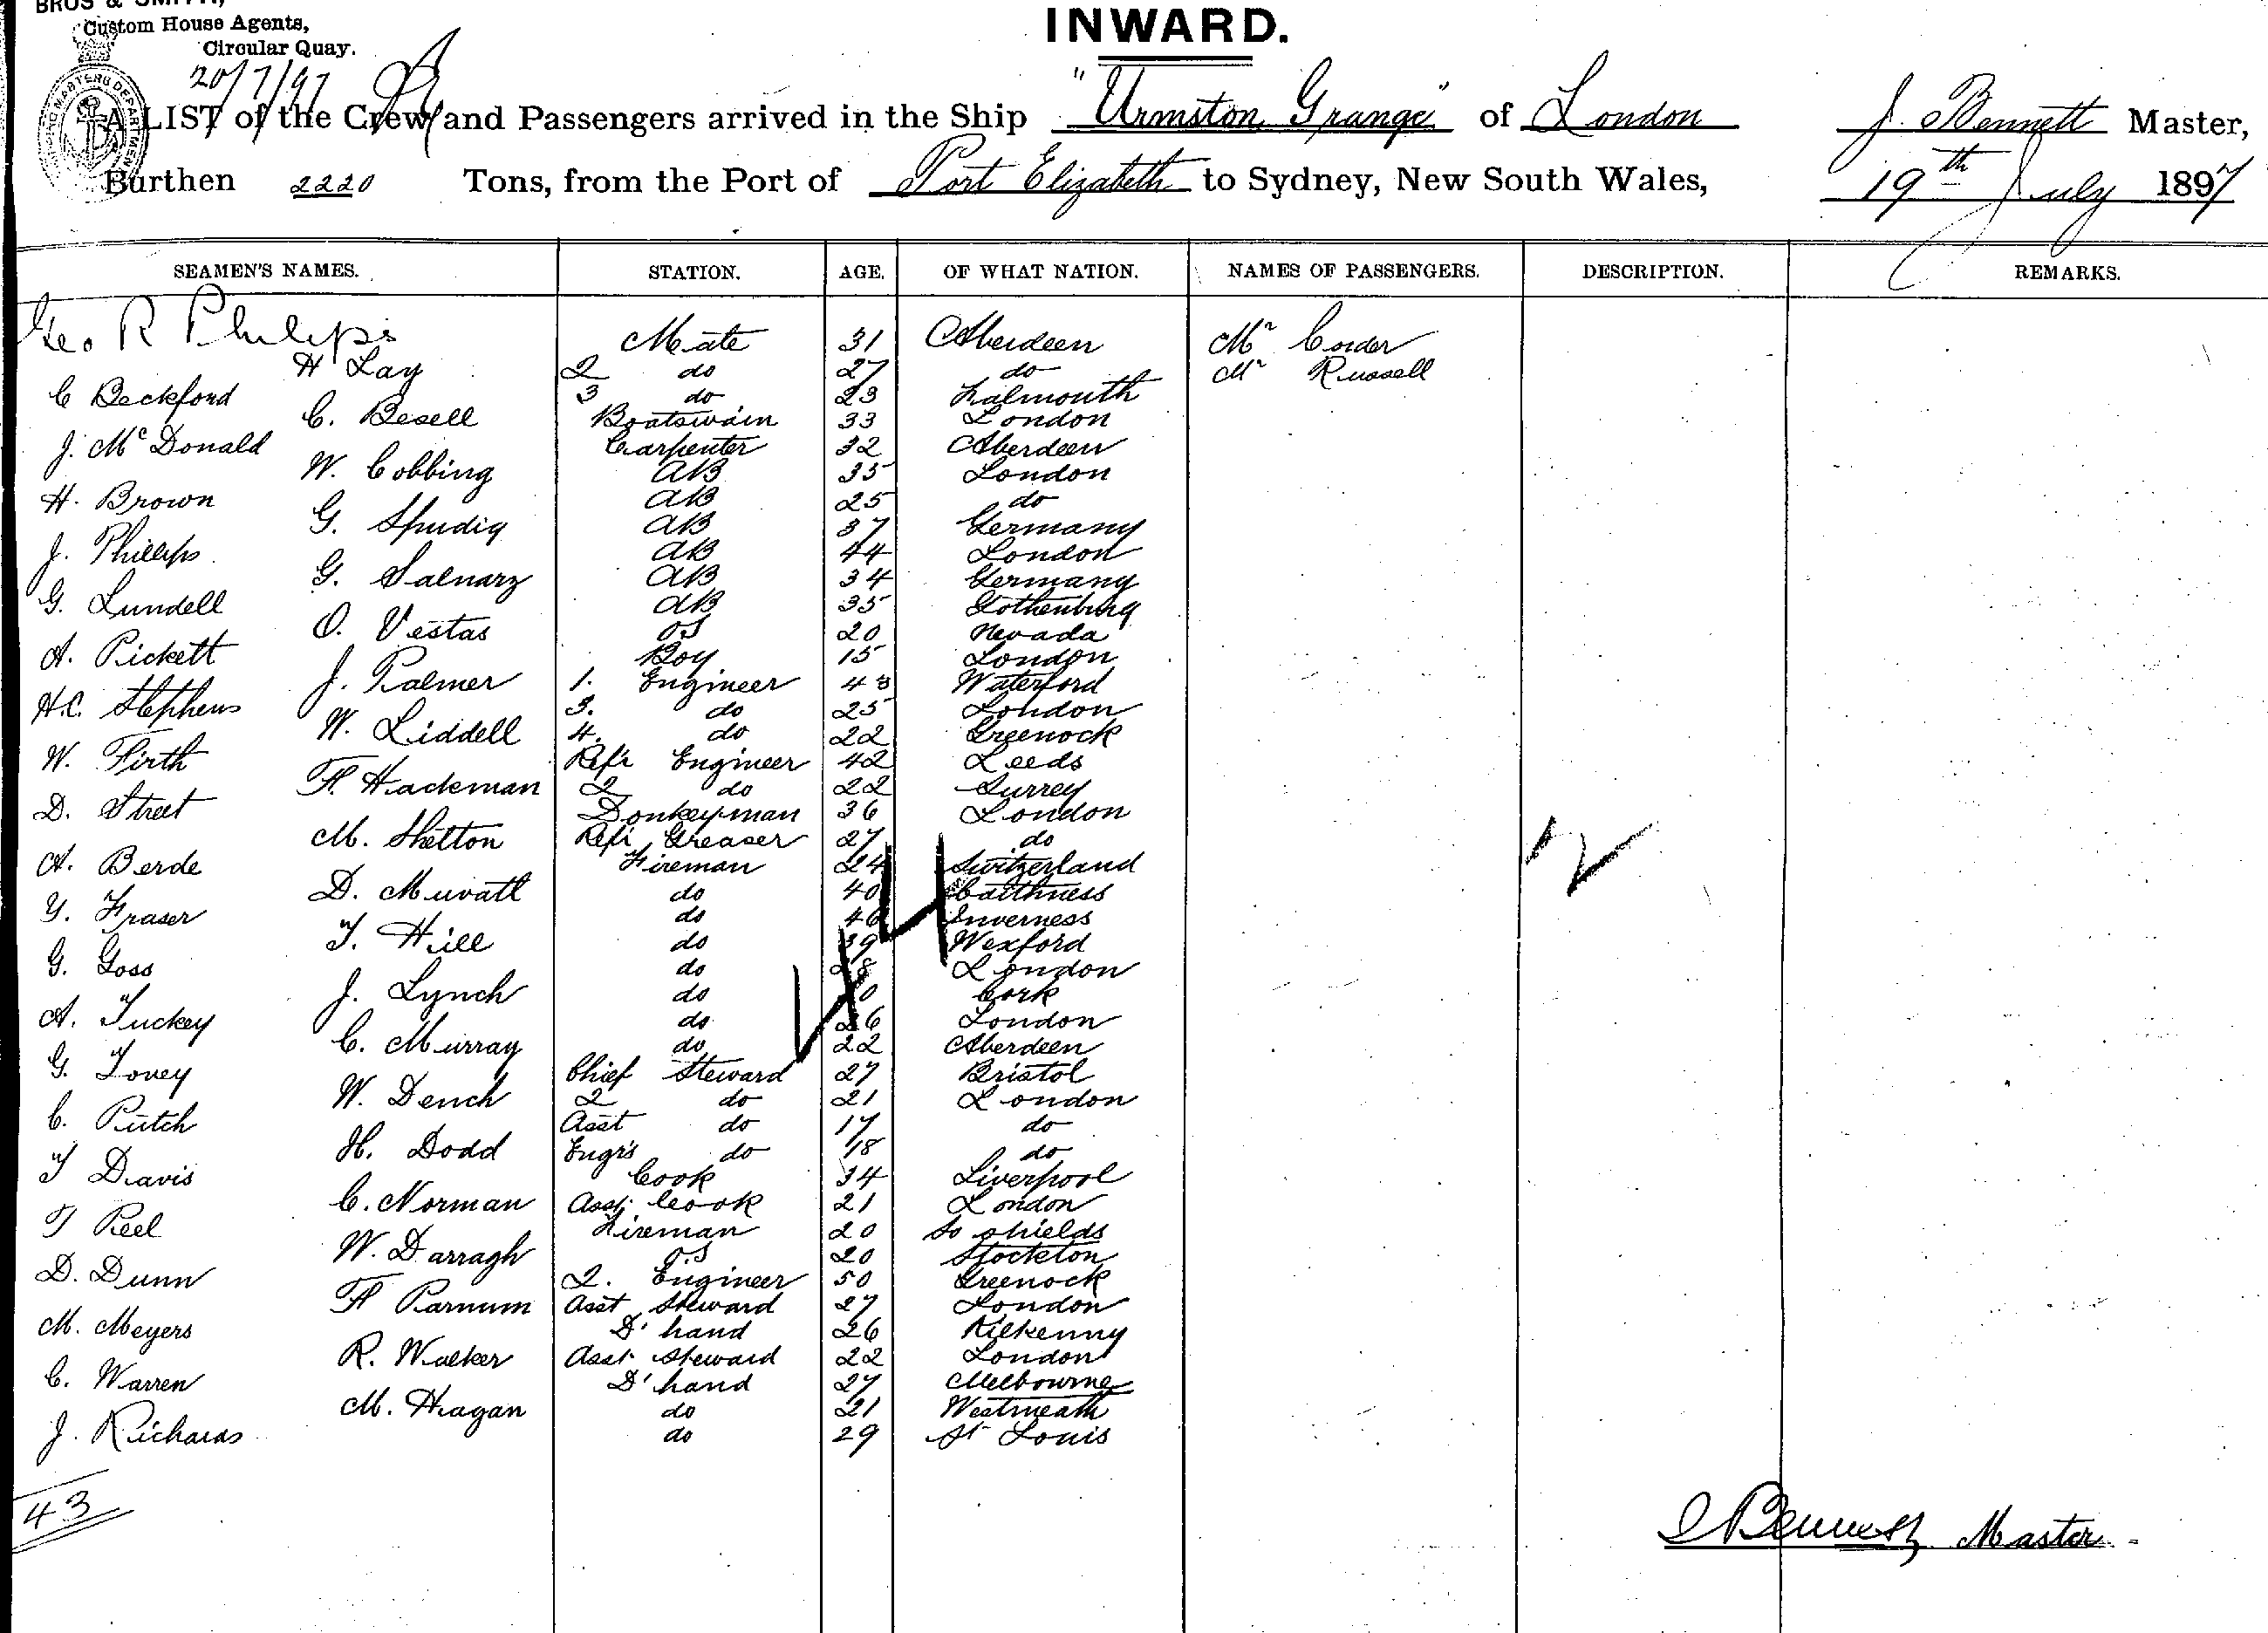 BROS & SMITH,
Custom House Agents,
Circular Quay.
20/7/97
INWARD.
A LIST of the Crew and Passengers arrived in the Ship "Urmston Grange" of London J. Bennett Master,
Burthen 2220 Tons, from the Port of Port Elizabeth to Sydney, New South Wales, 19th July 1897
SEAMEN'S NAMES. STATION. AGE. OF WHAT NATION. NAMES OF PASSENGERS. DESCRIPTION. REMARKS.
Geo R Philips Mate 31 Aberdeen Mr Corder
H Lay 2 do 27 do Mr Russell
C Beckford 3 do 23 Falmouth
C. Besell Boatswain 33 London
J. McDonald Carpenter 32 Aberdeen
W. Cobbing AB 35 London
H. Brown AB 25 do
G. Spudig AB 37 Germany
J. Phillips AB 44 London
G. Salnarz AB 34 Germany
G. Lundell AB 35 Gothenburg
O. Vestas OS 20 Nevada
A. Pickett Boy 15 London
J. Palmer 1. Engineer 43 Waterford
H.C. Stephens 3. do 25 London
W. Liddell 4. do 22 Greenock
W. Firth Refr Engineer 42 Leeds
F. Hackman 2 do 22 Surrey
D. Street Donkeyman 36 London
M. Shelton Refr Greaser 27 do
A. Berde Fireman 24 Switzerland
D. Muvatt do 40 Caithness
Y. Fraser do 46 Inverness
T. Hill do 39 Wexford
G. Goss do 28 London
J. Lynch do Cork
A. Tuckey do 26 London
C. Murray do 22 Aberdeen
G. Tovey Chief Steward 27 Bristol
W. Dench 2 do 21 London
C. Putch Asst do 17 do
H. Dodd Engrs do 18 do
T Davis Cook 34 Liverpool
C. Norman Asst Cook 21 London
T Peel Fireman 20 So Shields
W. Darragh O.S 20 Stockton
D. Dunn 2. Engineer 50 Greenock
F Parnum Asst Steward 27 London
M. Meyers D' hand 26 Kilkenny
R. Walker Asst Steward 22 London
C. Warren D' hand 27 Melbourne
M. Hagan do 21 Westmeath
J. Richards do 29 St Louis
43
J Bennett Master